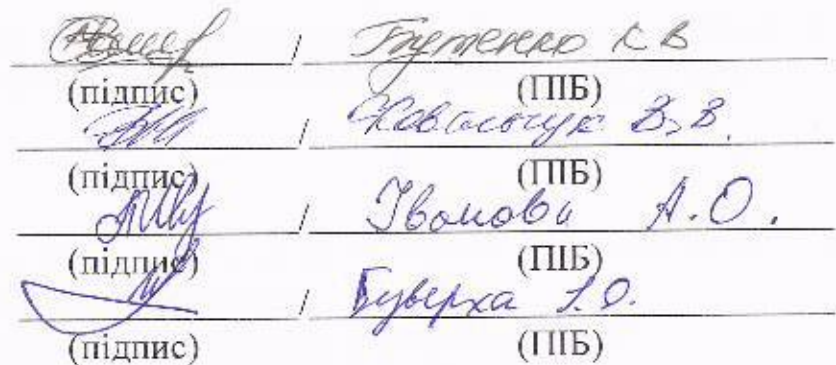 / Бутенко К В
(підпис) (ПІБ)
/ Ковальчук В. В.
(підпис) (ПІБ)
/ Іванова А. О.
(підпис) (ПІБ)
/ Буверха І. О.
(підпис) (ПІБ)